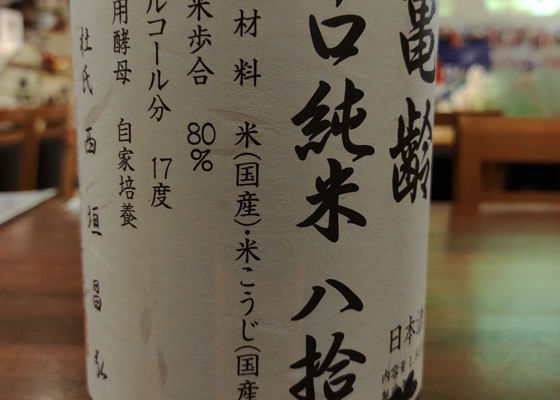 亀齢
口純米 八拾
日本清
内容量 1.8
材料 米(国産)・米こうじ(国産
米歩合 80%
ルコール分 17度
用酵母 自家培養
杜氏 西垣昌弘